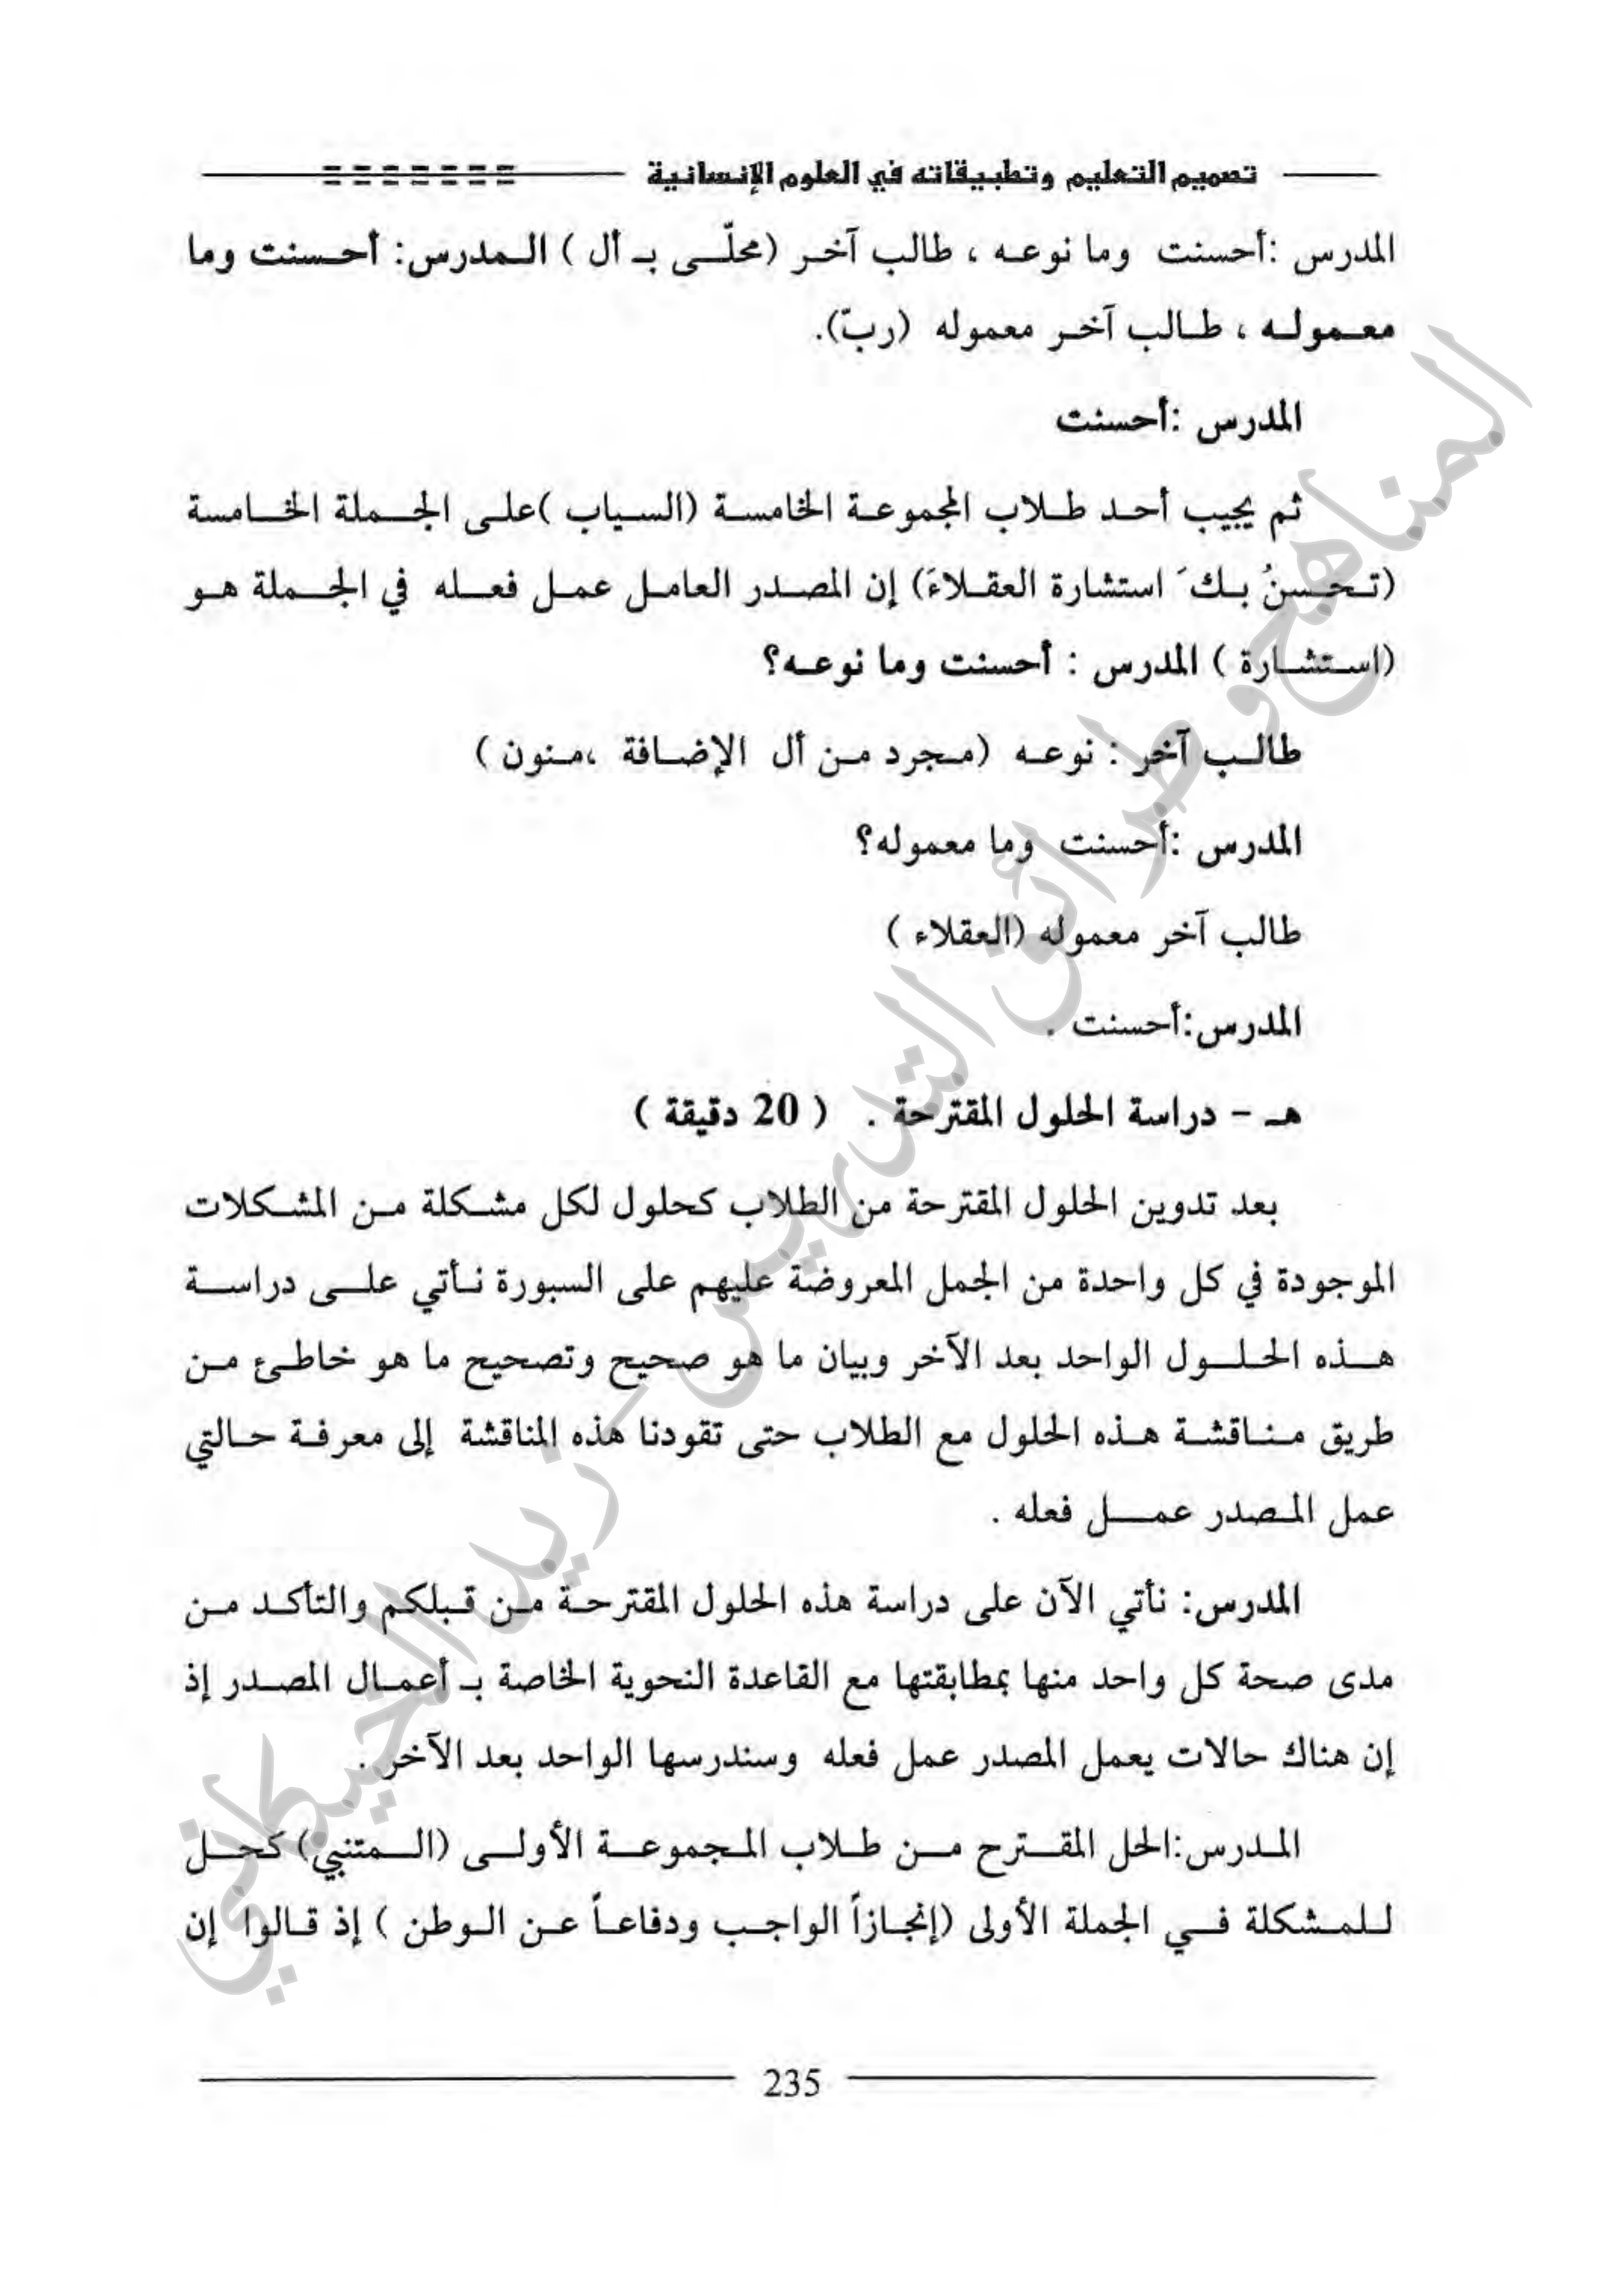 تصميم التعليم وتطبيقاته في العلوم الإنسانية
المدرس :أحسنت وما نوعه ، طالب آخر (محلّى بـ أل ) المدرس: أحسنت وما
معموله ، طالب آخر معموله (ربّ).
المدرس :أحسنت
ثم يجيب أحد طلاب المجموعة الخامسة (السياب )على الجملة الخامسة
(تحسنُ بكَ استشارة العقلاءَ) إن المصدر العامل عمل فعله في الجملة هو
(استشارة ) المدرس : أحسنت وما نوعه؟
طالب آخر : نوعه (مجرد من أل الإضافة ،منون )
المدرس :أحسنت وما معموله؟
طالب آخر معموله (العقلاء )
المدرس:أحسنت .
هـ - دراسة الحلول المقترحة . ( 20 دقيقة )
بعد تدوين الحلول المقترحة من الطلاب كحلول لكل مشكلة من المشكلات
الموجودة في كل واحدة من الجمل المعروضة عليهم على السبورة نأتي على دراسة
هذه الحلول الواحد بعد الآخر وبيان ما هو صحيح وتصحيح ما هو خاطئ من
طريق مناقشة هذه الحلول مع الطلاب حتى تقودنا هذه المناقشة إلى معرفة حالتي
عمل المصدر عمل فعله .
المدرس: نأتي الآن على دراسة هذه الحلول المقترحة من قبلكم والتأكد من
مدى صحة كل واحد منها بمطابقتها مع القاعدة النحوية الخاصة بـ أعمال المصدر إذ
إن هناك حالات يعمل المصدر عمل فعله وسندرسها الواحد بعد الآخر .
المدرس:الحل المقترح من طلاب المجموعة الأولى (المتنبي) كحل
للمشكلة في الجملة الأولى (إنجازاً الواجب ودفاعاً عن الوطن ) إذ قالوا إن
235
المناهج وطرائق التدريس - زيد الخيكاني